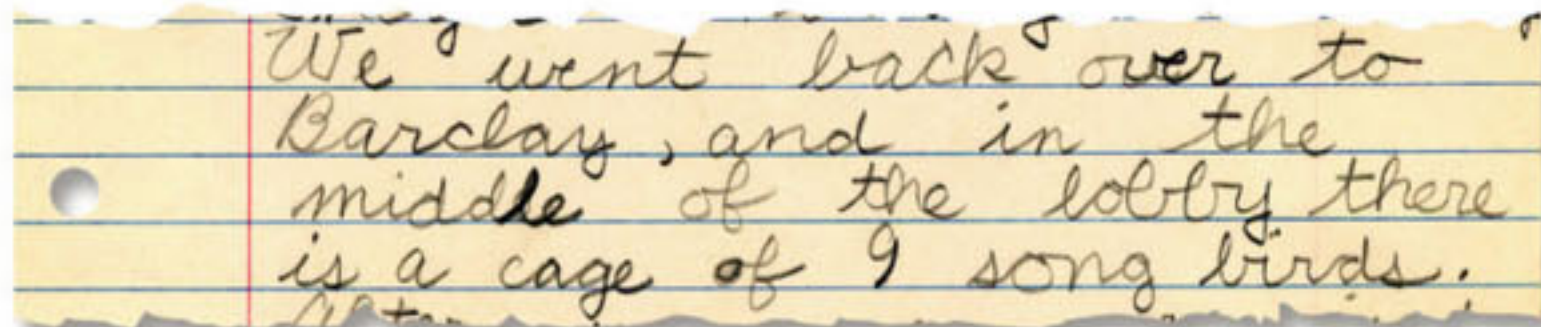 We went back over to
Barclay, and in the
middle of the lobby there
is a cage of 9 song birds.
After